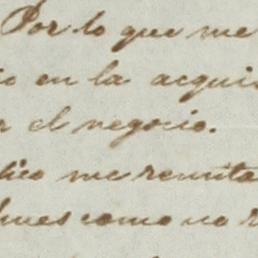 Por lo que me
en la acqui
el negocio.
me remita
como no